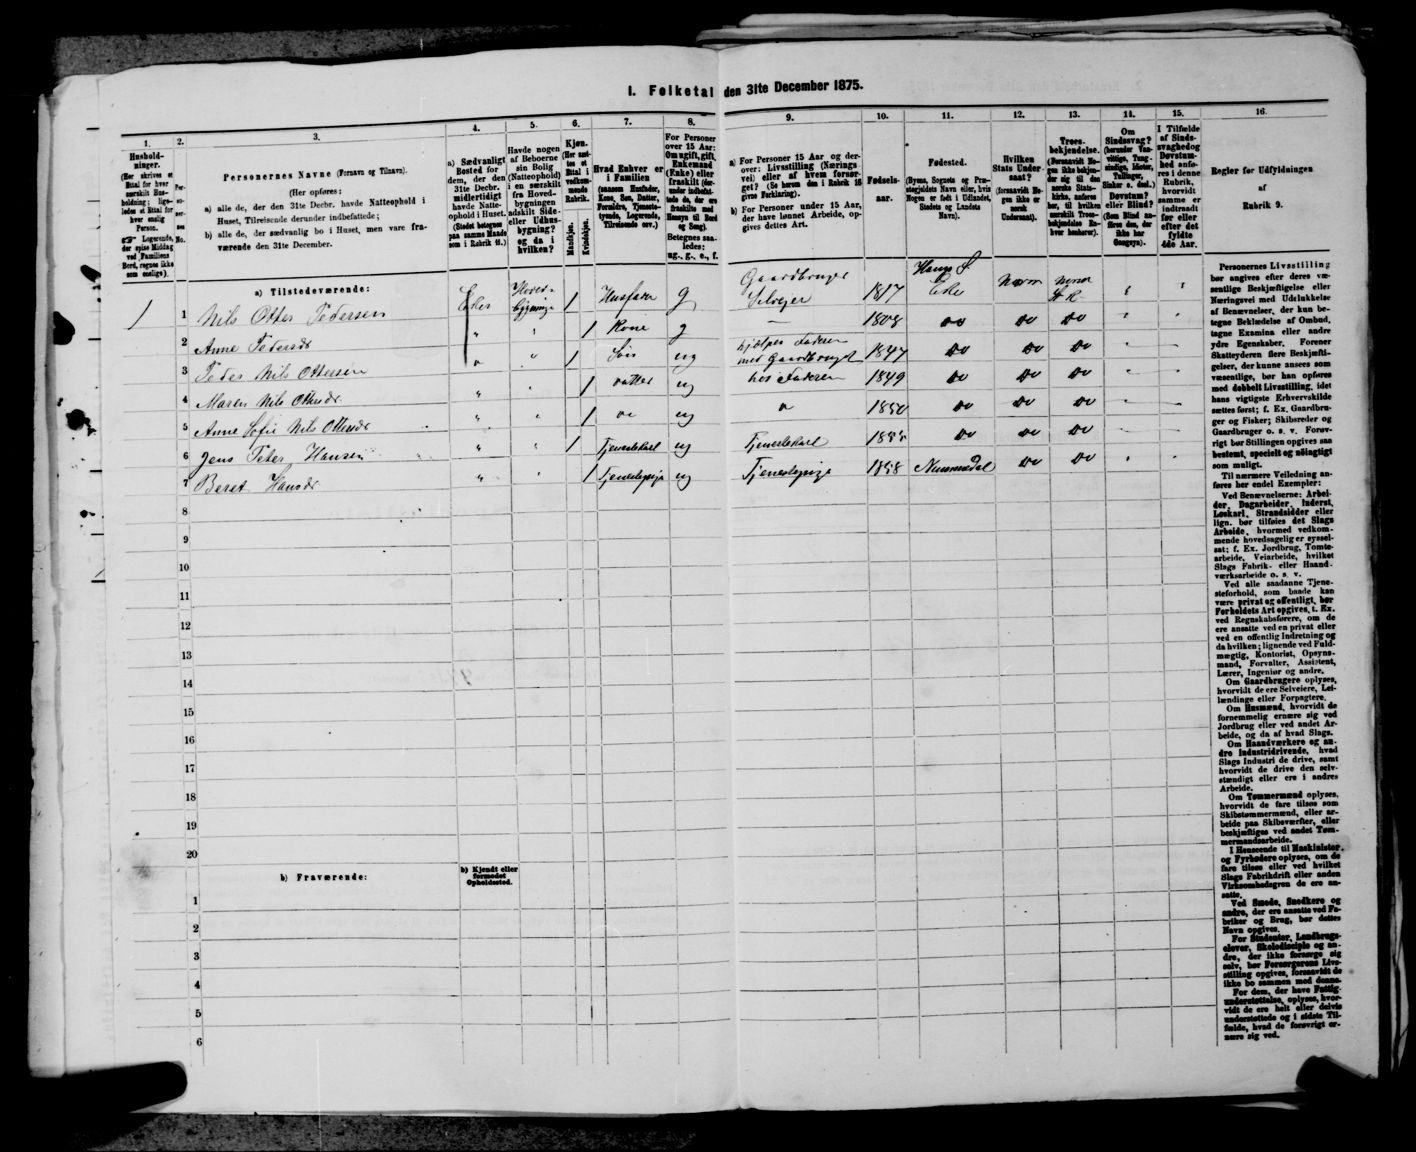 I. Folketal den 31te December 1875.
1. 2. 3. 4. 5. 6. 7. 8. 9. 10. 11. 12. 13. 14. 15. 16.
Personernes Navne (Fornavn og Tilnavn).
(Her opføres:
a) alle de, der den 31te Decbr. havde Natteophold i
Huset, Tilreisende derunder indbefattede;
b) alle de, der sædvanlig bo i Huset, men vare fra-
værende den 31te December.
a) Sædvanligt
Bosted for
dem, der den
31te Decbr.
midlertidigt
havde Natte-
ophold i Huset.
Havde nogen
af Beboerne
sin Bolig
(Natteophold)
i en særskilt
fra Hoved-
bygningen
adskilt Side-
eller Udhus-
bygning?
og da i
hvilken?
Kjøn.
Mandkjøn.
Kvindekjøn.
Hvad Enhver er
i Familien
(saasom Husfader,
Kone, Søn, Datter,
Forældre, Tjeneste-
tyende, Logerende,
Tilreisende osv.)
For Personer
over 15 Aar:
Om ugift, gift,
Enkemand
(Enke) eller
fraskilt
Betegnes saa-
ledes:
ug., g., e., f.
a) For Personer 15 Aar og der-
over: Livsstilling (Nærings-
vei) eller af hvem forsør-
get? (Se herom den i Rubrik 16
givne Forklaring).
b) For Personer under 15 Aar,
der have lønnet Arbeide, op-
gives dettes Art.
Fødsels-
aar.
Fødested.
(Byens, Sognets og Præ-
stegjeldets Navn eller, hvis
Nogen er født i Udlandet,
Stedets og Landets
Navn).
Hvilken
Stats Under-
saat?
Troes-
bekjendelse.
Om
Sindssvag?
Døvstum?
eller Blind?
I Tilfælde
af Sinds-
svaghed og
Døvstum-
hed anfø-
res i denne
Rubrik,
hvorvidt
samme er
indtraadt
før eller
efter det
fyldte
4de Aar.
Regler for Udfyldningen
af
Rubrik 9.
a) Tilstedeværende:
1 1 Nils Otter Pedersen Eker Hoved-bygning 1 Husfader g Gaardbruger Selvejer 1817 Haugs S. Eker norsk norsk St K
2 Anne Pedersdr " " 1 Kone g — 1808 do do do
3 Peder Nils Ottersen " " 1 Søn ug hjelper Faderen med Gaardbruget 1847 do do do
4 Maren Nils Ottersdr " " 1 datter ug hos Faderen 1849 do do do
5 Anne Sofie Nils Ottersdr " " 1 do ug do 1850 do do do
6 Jens Peter Hansen " " 1 Tjenestekarl ug Tjenestekarl do do do
7 Beret Hansdr " " 1 Tjenestepige ug Tjenestepige 1858 Nummedal do do
8
9
10
11
12
13
14
15
16
17
18
19
20
b) Fraværende:
b) Kjendt eller
formodet
Opholdssted.
1
2
3
4
5
6
Personernes Livsstilling
bør angives efter deres væ-
sentlige Beskjæftigelse eller
Næringsvei med Udelukkelse
af Benævnelser, der kun be-
tegne Beklædelse af Ombud,
tagne Examina eller andre
ydre Egenskaber. Forener
Skatteyderen flere Beskjæfti-
gelser, der kunne ansees som
væsentlige, bør han opføres
med dobbelt Livsstilling, idet
hans vigtigste Erhvervskilde
sættes først; f. Ex. Gaardbru-
ger og Fisker; Skibsreder og
Gaardbruger o. s. v. Forøv-
rigt bør Stillingen opgives saa
bestemt, specielt og nøiagtigt
som muligt.
Til nærmere Veiledning an-
føres her endel Exempler:
Ved Benævnelserne: Arbei-
der, Dagarbeider, Inderst,
Løskarl, Strandsidder eller
lign. bør tilføies det Slags
Arbeide, hvormed vedkom-
mende hovedsagelig er syssel-
sat; f. Ex. Jordbrug, Tomte-
arbeide, Veiarbeide, hvilket
Slags Fabrik- eller Haand-
værksarbeide o. s. v.
Ved alle saadanne Tjene-
steforhold, som baade kan
være privat og offentligt, bør
Forholdets Art opgives, t. Ex.
ved Regnskabsførere, om de
ere ansatte ved en privat eller
ved en offentlig Indretning og
da hvilken; lignende ved Fuld-
mægtig, Kontorist, Opsyns-
mand, Forvalter, Assistent,
Lærer, Ingeniør og andre.
Om Gaardbrugere oplyses,
hvorvidt de ere Selveiere, Lei-
lændinge eller Forpagtere.
Om Husmænd, hvorvidt de
fornemmelig ernære sig ved
Jordbrug eller ved andet Ar-
beide, og da af hvad Slags.
Om Haandværkere og an-
dre Industridrivende, hvad
Slags Industri de drive, samt
hvorvidt de drive den selv-
stændigt eller ere i andres
Arbeide.
Om Tømmermænd oplyses,
hvorvidt de fare tilsøs som
Skibstømmermænd, eller ar-
beide paa Skibsværfter, eller
beskjæftiges ved andet Tøm-
mermandsarbeide.
I Henseende til Maskinister
og Fyrbødere oplyses, om de
fare tilsøs eller ved hvilket
Slags Fabrikdrift eller anden
Virksomhedsgren de ere an-
satte.
Ved Smede, Snedkere og
andre, der ere ansatte ved Fa-
briker og Brug, bør dettes
Navn opgives.
For Studenter, Landbrugs-
elever, Skoledisciple og an-
dre, der ikke forsørge sig
selv, bør Forsørgerens Livs-
stilling opgives, forsaavidt de
ikke bo sammen med denne.
For dem, der have Fattig-
understøttelse, oplyses, hvor-
vidt de ere helt eller delvis
understøttede og i sidste Til-
fælde, hvad de forøvrigt er-
nære sig ved.